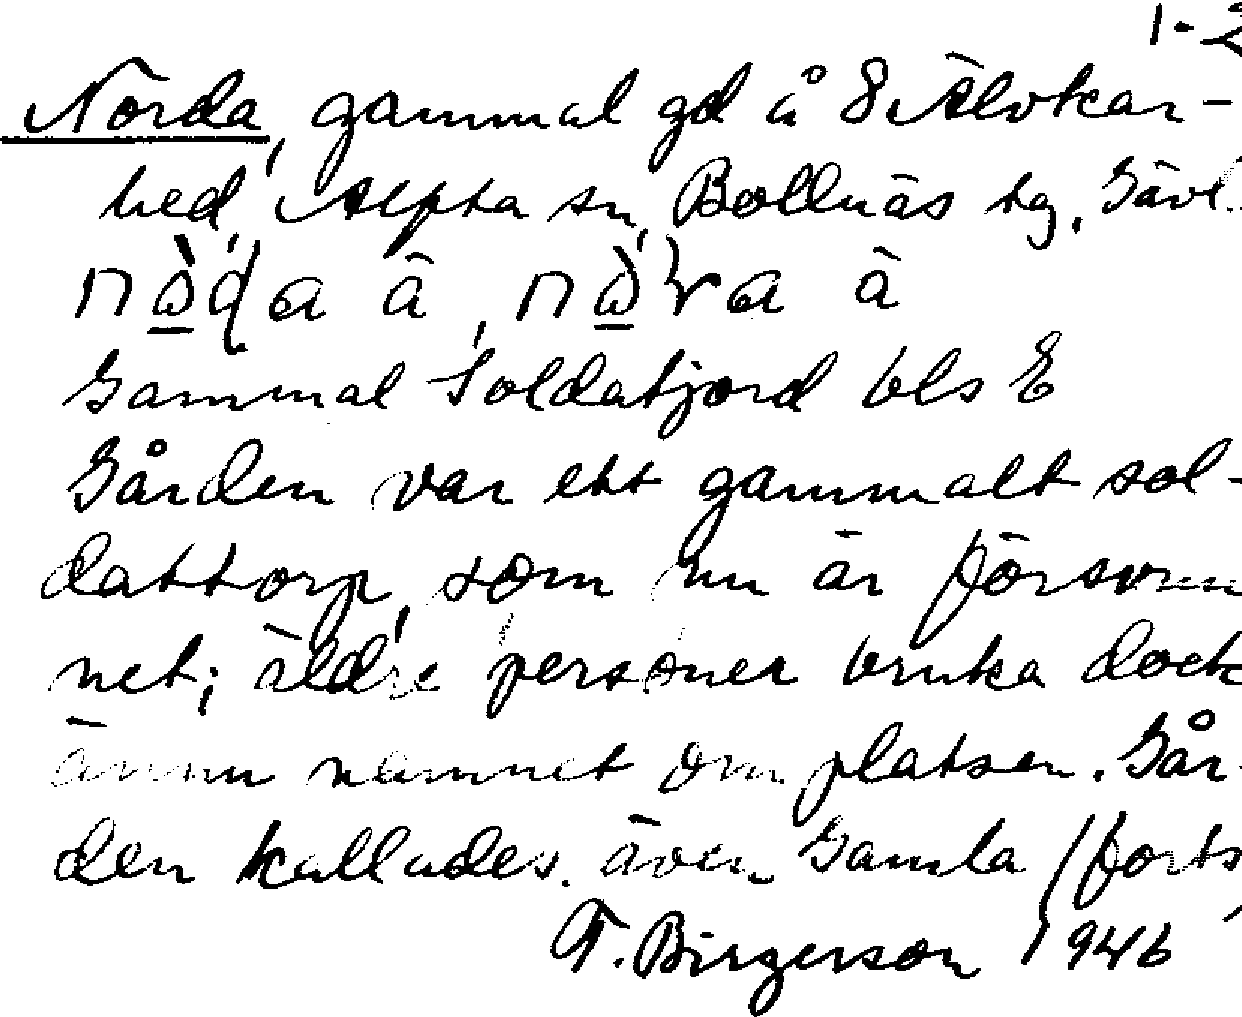 1-2
Norda, gammal gd å 8 Älvkar-
hed, Alfta sn, Bollnäs tg, Gävl.
Gammal Soldatjord bls E
Gården var ett gammalt sol-
dattorp, som nu är försvun
net; äldre personer bruka dock
ännu namnet om platsen. Går-
den kallades även Gamla /forts
F. Birgerson 1946